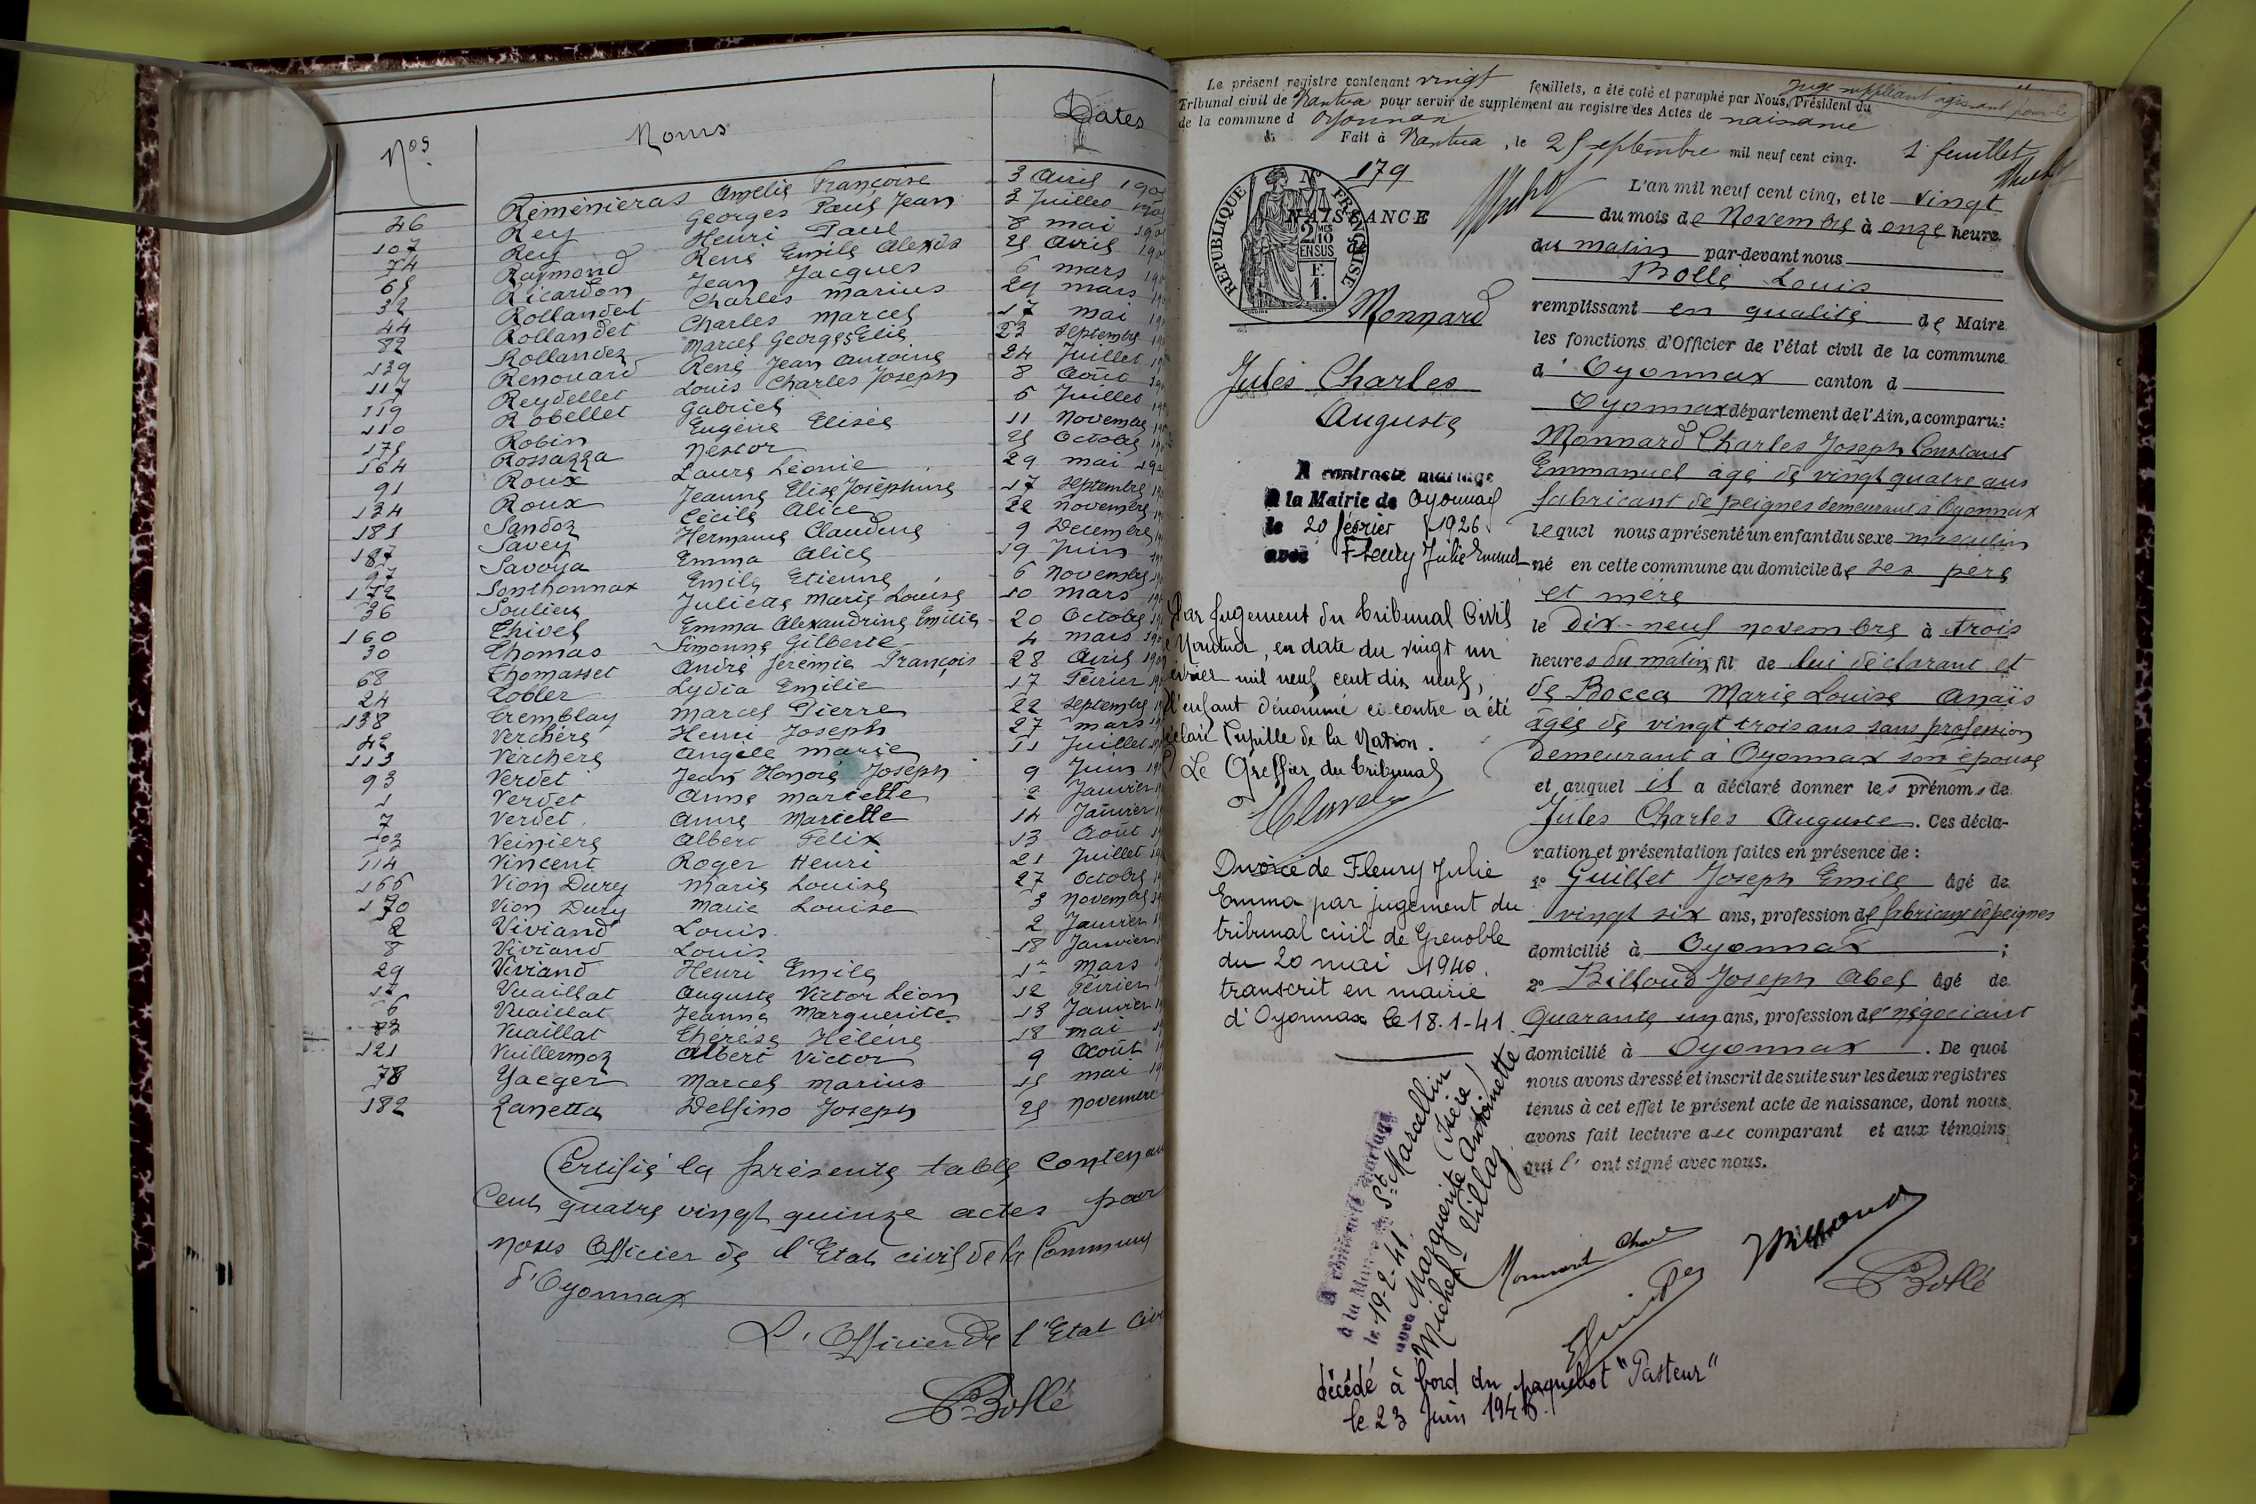 Nos
Noms
Dates
Réméniéras Amélie Françoise 3 Avril
46 Rey Georges Paul Jean 3 Juillet
107 Rey Henri Paul 8 mai
74 Raymond René Emile Alexis 25 Avril
65 Ricardon Jean Jacques 6 mars
32 Rollandet Charles Marius 29 mars
44 Rollandet Charles Marcel 17 mai
82 Rollandez Marcel Georges Elie 23 Septembre
139 Renouard René Jean Antoine 24 Juillet
117 Reydellet Louis Charles Joseph 8 Août
119 Robellet Gabriel 6 Juillet
110 Robin Eugène Elisée 11 Novembre
175 Rossazza Nestor 25 Octobre
164 Roux Laure Léonie 29 mai
91 Roux Jeanne Elise Joséphine 17 Septembre
134 Sandoz Cécile Alice 22 Novembre
181 Savey Hermance Claudine 9 Décembre
187 Savoya Emma Alice 19 Juin
97 Sonthonnax Emile Etienne 6 Novembre
172 Soulier Juliette Marie Louise 10 mars
36 Thivel Emma Alexandrine Emilie 20 Octobre
160 Thomas Simonne Gilberte 4 mars
30 Thomasset André Jérémie François 28 Avril
68 Tobler Lydia Emilie 17 Février
24 Tremblay Marcel Pierre 22 Septembre
138 Verchère Henri Joseph 27 mars
42 Verchère Angèle Marie 11 Juillet
113 Verdet Jean Honoré Joseph 9 Juin
93 Verdet Anna Marcelle 2 Janvier
1 Verdet Anna Marcelle 14 Janvier
7 Veinière Albert Félix 13 Août
Vincent Roger Henri 21 Juillet
114 Vion Dury Marie Louise 27 Octobre
166 Vion Dury Marie Louise 3 Novembre
170 Viviand Louis 2 Janvier
2 Viviand Louis 18 Janvier
8 Viviand Henri Emile 1er Mars
29 Vuaillat Auguste Victor Léon 12 Février
Vuaillat Jeanne Marguerite 13 Janvier
6 Vuaillat Thérèse Hélène 18 mai
121 Vuillermoz Albert Victor 9 Août
78 Yaeger Marcel Marius 15 mai
182 Zanetta Delfino Joseph 25 Novembre
Certifié la présente table contenant
Cent quatre vingt quinze actes par
nous Officier de l'Etat civil de la Commune
d'Oyonnax
L'Officier de l'Etat Civil
Bollé
Le présent registre contenant vingt feuillets, a été coté et paraphé par Nous, Président du
Juge suppléant agissant pour le
Tribunal civil de Nantua pour servir de supplément au registre des Actes de naissance
de la commune d Oyonnax
Fait à Nantua, le 25 septembre mil neuf cent cinq. 1er feuillet
No 179
RÉPUBLIQUE FRANÇAISE
2 MES 10 EN SUS
F. 1.
NAISSANCE
de
Monnard
Jules Charles
Auguste
A contracté mariage
à la Mairie de Oyonnax
le 20 février 1926
avec Fleury Julie Emma
Par jugement du Tribunal Civil
de Nantua, en date du vingt un
février mil neuf cent dix neuf,
l'enfant dénommé ci contre a été
déclaré Pupille de la Nation.
Le Greffier du Tribunal
Divorcé de Fleury Julie
Emma par jugement du
tribunal civil de Grenoble
du 20 mai 1940.
transcrit en mairie
d'Oyonnax le 18.1-41.
A contracté mariage
à la Mairie de St Marcellin (Isère)
le 19-2-41
avec Marguerite Antoinette
Michel-Villaz
décédé à bord du paquebot "Pasteur"
le 23 Juin 1946.
L'an mil neuf cent cinq, et le vingt
du mois de Novembre à onze heure
du matin par-devant nous
Bollé Louis
remplissant en qualité de Maire
les fonctions d'Officier de l'état civil de la commune
d'Oyonnax canton d
Oyonnax département de l'Ain, a comparu:
Monnard Charles Joseph Constant
Emmanuel agé de vingt quatre ans
fabricant de peignes demeurant à Oyonnax
lequel nous a présenté un enfant du sexe masculin
né en cette commune au domicile de ses père
et mère
le dix-neuf novembre à trois
heures du matin fil de lui déclarant et
de Bocca Marie Louise Anaïs
âgée de vingt trois ans sans profession
demeurant à Oyonnax son épouse
et auquel il a déclaré donner les prénoms de
Jules Charles Auguste. Ces décla-
ration et présentation faites en présence de :
1o Guillet Joseph Emile âgé de
vingt six ans, profession de fabricant de peignes
domicilié à Oyonnax ;
2o Billoud Joseph Abel âgé de
quarante un ans, profession de négociant
domicilié à Oyonnax. De quoi
nous avons dressé et inscrit de suite sur les deux registres
tenus à cet effet le présent acte de naissance, dont nous
avons fait lecture au comparant et aux témoins
qui l' ont signé avec nous.
Monnard Char
Billoud
Bollé